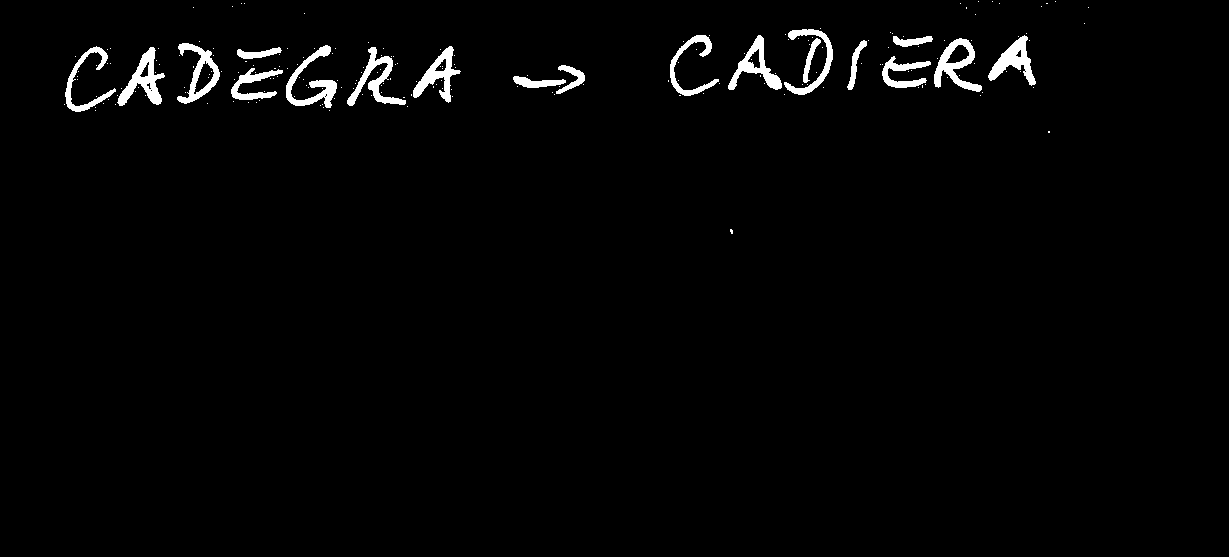 CADEGRA → CADIERA